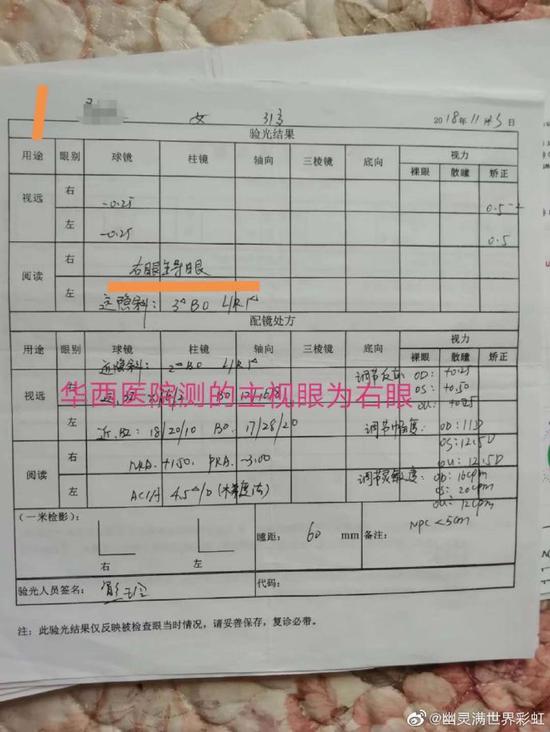 女 31岁 2018年11月5日
验光结果
用途 眼别 球镜 柱镜 轴向 三棱镜 底向 视力
裸眼 散瞳 矫正
视远 右 -0.25 0.5⁻⁺
左 -0.25 0.5
阅读 右 右眼主导眼
左 远隐斜： 3△BO L/R 1△
配镜处方
用途 眼别 球镜 柱镜 轴向 三棱镜 底向 视力
近隐斜： 2△BO L/R 1△ 裸眼 散瞳 矫正
华西医院测的主视眼为右眼
视远 右 调节反应 OD: +0.25
OS: +0.50
OU: +0.25
左 近. BI: 18/20/10 BO. 17/28/20 调节幅度: OD: 11D
OS: 12.5D
阅读 右 NRA. +1.50. PRA. -3.00 OU: 12.5D
左 AC/A 4.5△/D (梯度法) 调节灵敏度: OD: 16cpm
OS: 20cpm
OU: 12cpm
(一米检影): 右 左 瞳距: 60 mm 备注: NPC<5cm
验光人员签名: 代码:
注：此验光结果仅反映被检查眼当时情况，请妥善保存，复诊必带。
@幽灵满世界彩虹